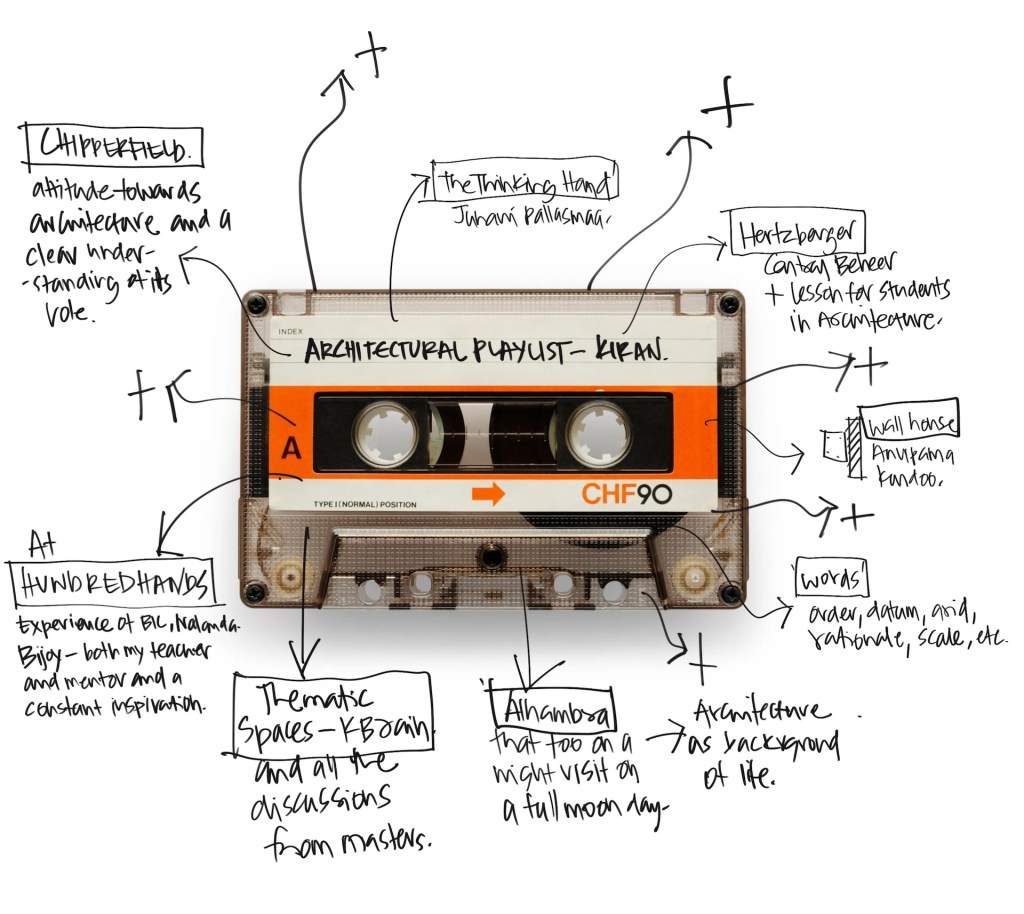 CHIPPERFIELD.
attitude towards
architecture and a
clear under-
-standing of its
role.
'The Thinking Hand'
Juhani Pallasmaa.
Hertzberger
Central Beheer
+ lesson for students
in Architecture.
INDEX
ARCHITECTURAL PLAYLIST - KIRAN.
A
TYPE I (NORMAL) POSITION
CHF90
Wall house
Anupama
Kundoo.
'words'
order, datum, grid,
rationale, scale, etc.
At
HUNDREDHANDS
Experience of BIC, Nalanda.
Bijoy - both my teacher
and mentor and a
constant inspiration.
Thematic
Spaces - KBJain
and all the
discussions
from masters.
'Alhambra
that too on a
night visit on
a full moon day-
Architecture
as background
of life.
+
+
+
+
+
+